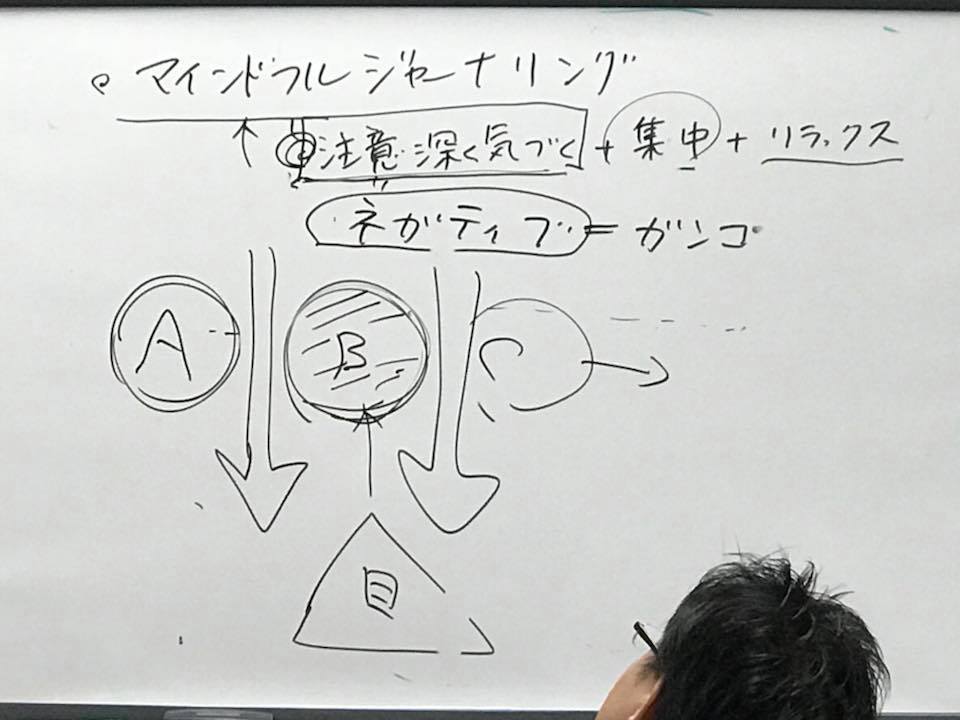 マインドフルジャーナリング
注意深く気づく + 集中 + リラックス
ネガティブ = ガンコ
A B C
目